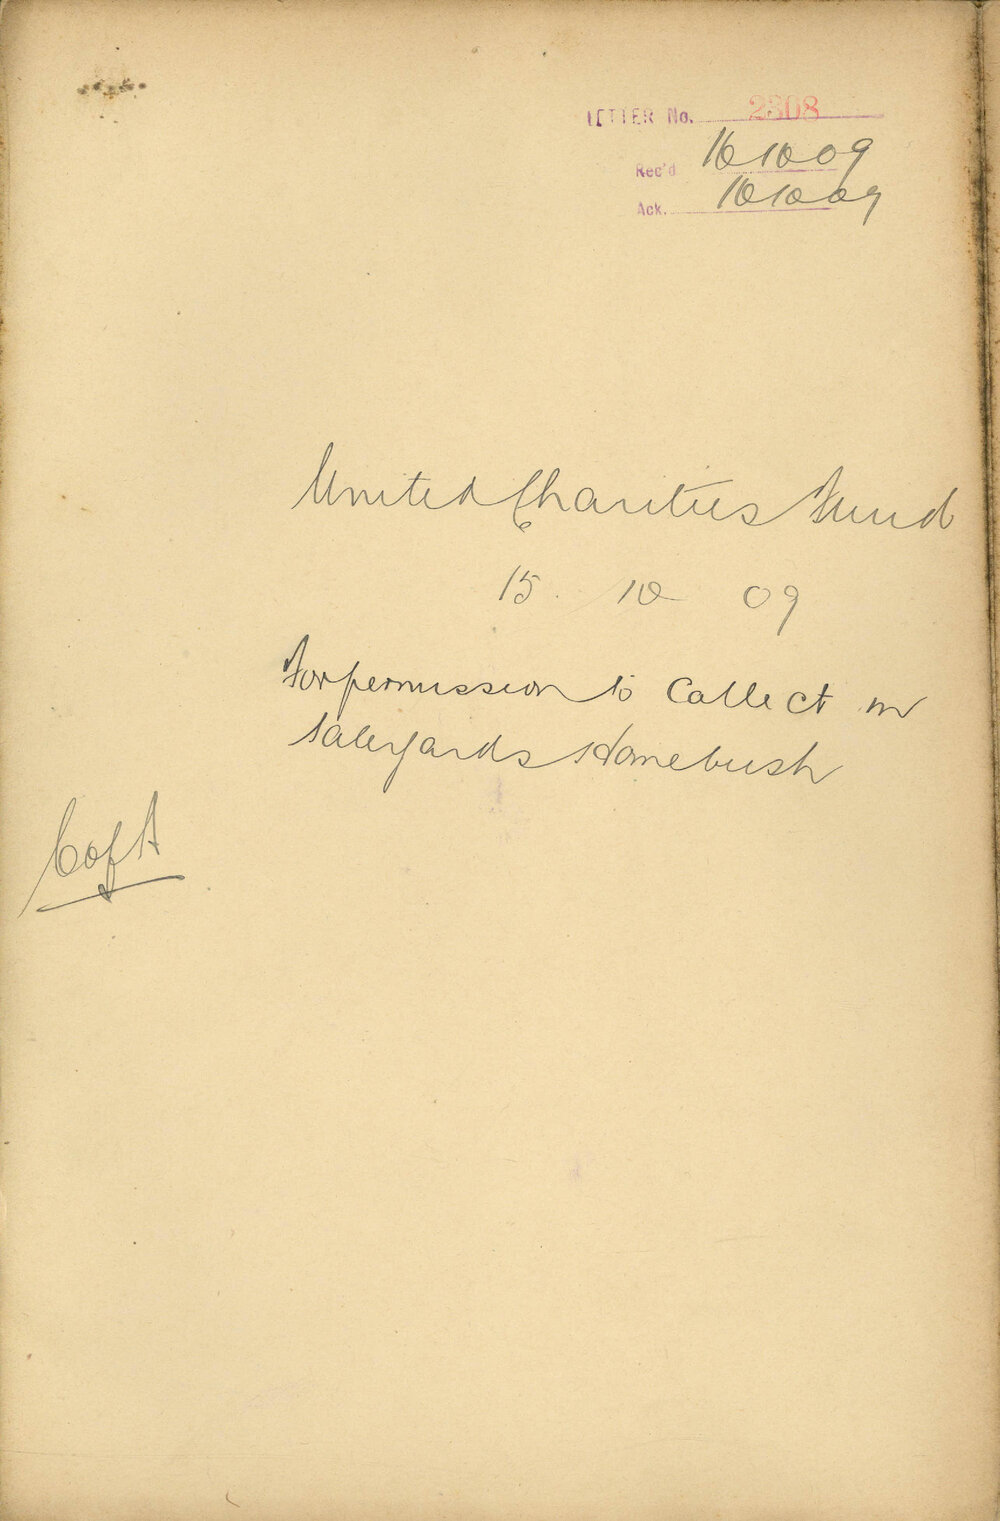 LETTER No. 2308
Rec'd 16 10 09
Ack. 16 10 09
United Charities Fund
15. 10 09
For permission to Collect in
Saleyards Homebush
C of A